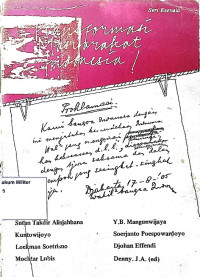 Seri Esei
Transformasi
Masyarakat
Indonesia
Proklamasi.
Kami bangsa Indonesia dengan
ini menjatakan kemerdekaan Indonesia
Hal2 jang mengenai
kan kekoeasaan d.l.l.,
dengan tjara saksama dan
tempoh jang sesingkat-singkat
Djakarta, 17-8-'05
Wakil2 bangsa Indon
ukum Militer
Sutan Takdir Alisjahbana
Kuntowijoyo
Loekman Soetrisno
Mochtar Lubis
Y.B. Mangunwijaya
Soerjanto Poespowardoyo
Djohan Effendi
Denny. J.A. (ed)